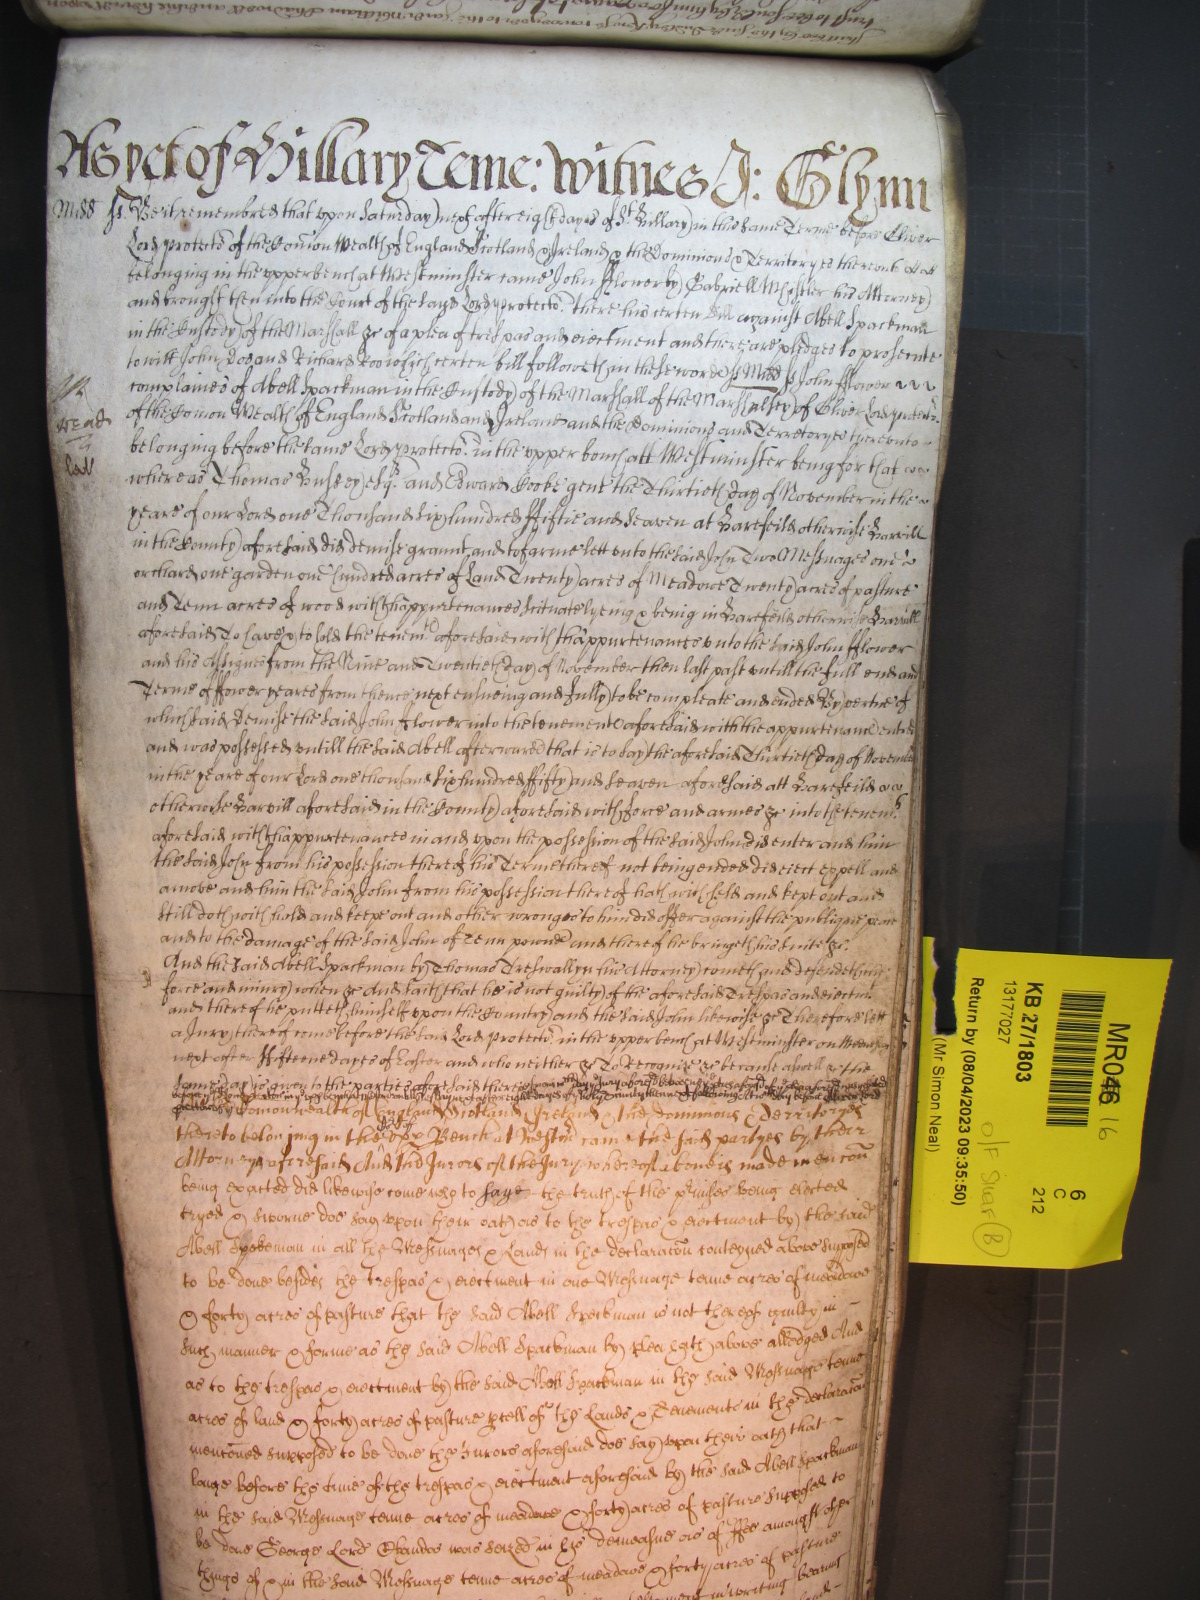 As yet of Hillary Terme: Witnes J: Glynn
Midd ss. Be it remembred that upon Saturday next after eight dayes of St Hillary in this same Terme before Oliver
Lord protector of the Comon Wealth of England Scotland & Ireland & the Dominions & Territoryes thereunto
belonging in the upper bench at Westminster came John fflower by Gabriell Whistler his Attorney
and brought then into the Court of the sayd Lord protector there his certen Bill against Abell Spackman
in the Custody of the Marshall &c of a plea of trespas and eiectment and there are pledges to prosecute
to witt John Doe and Richard Roo which certen bill followeth in these words ss Midd ss John fflower
complaines of Abell Spackman in the Custody of the Marshall of the Marshalsey of Oliver Lord protector
of the Comon Wealth of England Scotland and Ireland and the Dominions and Terretoryes thereunto
belonging before the same Lord protector in the upper bench att Westminster being for that
whereas Thomas Esqr and Edward Cooke gent the Thirtieth day of November in the
yeare of our Lord one Thousand six hundred ffiftie and Seaven at Harefeild otherwise Harvill
in the County aforesaid did demise graunt and to farme lett unto the said John Two Messuages one
orchard one garden one hundred acres of Land Twenty acres of Meadowe Twenty acres of pasture
and Tenn acres of wood with thappurtenances scituate lyeing & being in Harefeild otherwise Harvill
aforesaid To have & to hold the tenemts aforesaid with thappurtenances unto the said John fflower
and his Assignes from the Nine and Twentieth day of November then last past untill the full end and
Terme of ffower yeares from thence next ensueing and fully to be compleate and ended By vertue of
which said demise the said John fflower into the tenements aforesaid with the appurtenances entred
and was possessed untill the said Abell afterwards that is to say the aforesaid Thirtieth day of November
in the yeare of our Lord one thousand six hundred ffifty and seaven aforesaid att Harefeild
otherwise Harvill aforesaid in the County aforesaid with force and armes &c into the tenemts
aforesaid with thappurtenances in and upon the possession of the said John did enter and him
the said John from his possession thereof his Terme thereof not being ended did eiect expell and
amove and him the said John from his possession thereof hath with held and kept out and
still doth with hold and keepe out and other wronges to him did offer against the publique peace
and to the damage of the said John of Tenn pounds and thereof he bringeth his suite &c.
And the said Abell Spackman by Thomas his Attorney cometh and defendeth
force and iniury when &c And saith that he is not guilty of the aforesaid Trespas and eiectmt
and thereof he putteth himself upon the Country and the said John likewise &c Therefore lett
a Jury thereof come before the said Lord Protector in the upper bench at Westminster on
next after ffifteene dayes of Easter and who neither &c To Recognize &c because aswell &c The
same day is given to the parties aforesaid there
Commonwealth of England Scotland & Ireland & the dominions & Territoryes
thereto belonging in the upp Bench at Westmr came the said partyes by their
Attorneys aforesaid And the Jurors of the Jury whereof
being exacted did likewise come who to saye the truth of the being elected
tryed & sworne doe say upon their oath as to the trespas & eiectment by the said
Abell Speckman in all the Messuages & Lands in the declaracon conteyned above supposed
to be done besides the trespas & eiectment in one Messuage tenne acres of meadowe
& forty acres of pasture that the said Abell Speckman is not thereof guilty in
such manner & forme as the said Abell Spackman by plea hath above alledged And
as to the trespas & eiectment by the said Abell Spackman in the said Messuage tenne
acres of land & forty acres of pasture pcell of the Lands & Tenements in the declaracon
mentoned supposed to be done the Jurors aforesaid doe say upon their oath that
longe before the time of the trespas & eiectment aforesaid by the said Abell Spackman
in the said Messuage tenne acres of meadowe & forty acres of pasture supposed to
be done George Lord Chandos was seized in his demeasne as of ffee amongst other
things of & in the said Messuage tenne acres of meadowe & forty acres of pasture
in writing bearing
MR046
16
KB 27/1803
13177027
Return by (08/04/2023 09:35:50)
(Mr Simon Neal)
6
C
212